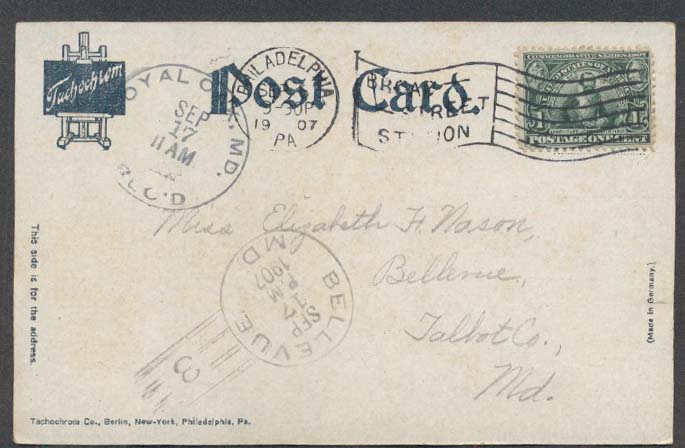 Tachochrom
Post Card.
ROYAL OAK, MD.
SEP
17
11 AM
REC'D
PHILADELPHIA
SEP
1907
PA
BROAD
STREET
STATION
COMMEMORATIVE SERIES 1907
1 1
POSTAGE ONE CENT
Miss Elizabeth H. Nason,
Bellevue,
Talbot Co.,
Md.
BELLEVUE
MD
SEP
17
PM
1907
3
This side is for the address.
(Made in Germany.)
Tachochrom Co., Berlin, New-York, Philadelphia, Pa.